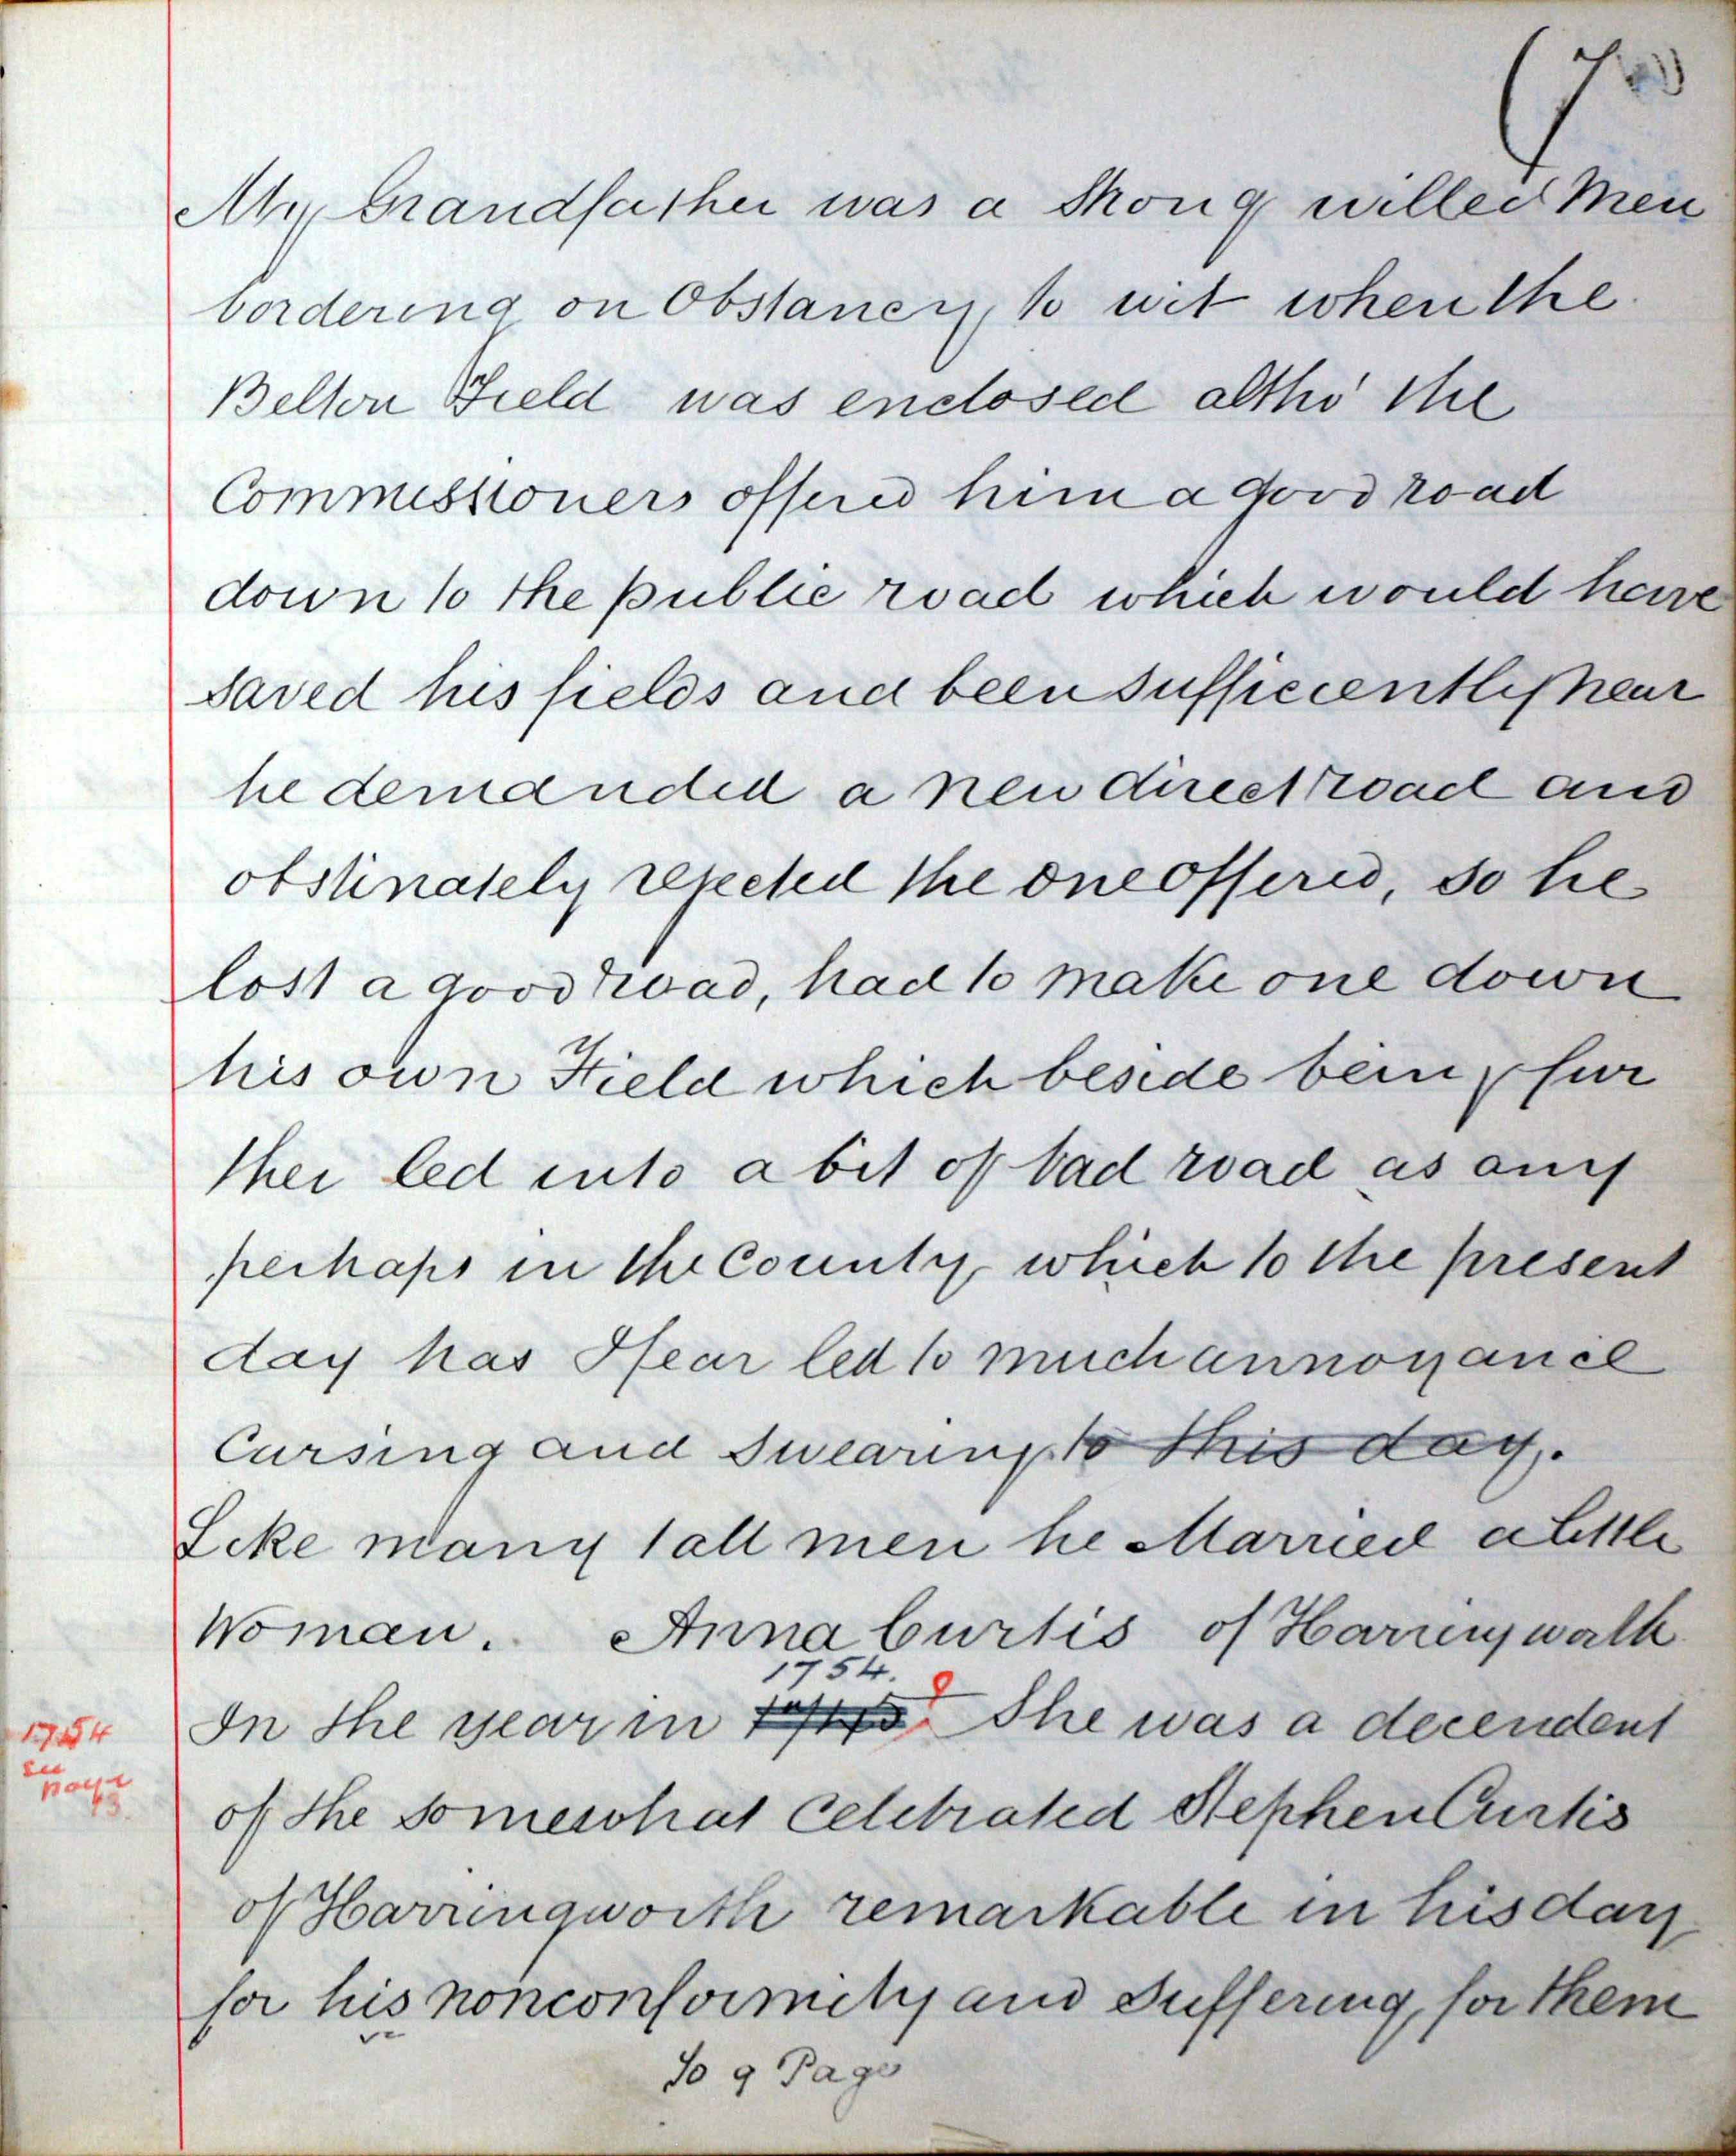 (7
My Grandfather was a Strong willed Man
bordering on Obstancy, to wit when the
Belton Field was enclosed altho' the
Commissioners offered him a good road
down to the public road which would have
saved his fields and been sufficiently near
he demanded a new direct road and
obstinately rejected the one offered, so he
lost a good road, had to make one down
his own Field which beside being fur
ther led into a bit of bad road as any
perhaps in the County, which to the present
day has I fear led to much annoyance
Cursing and Swearing to this day.
Like many tall men he Married a little
Woman. Anna Curtis of Harringworth
1754.
In the year in She was a decendent
1754
see
page
43.
of the somewhat celebrated Stephen Curtis
of Harringworth remarkable in his day
for his nonconformity and Suffering, for them
To 9 Page